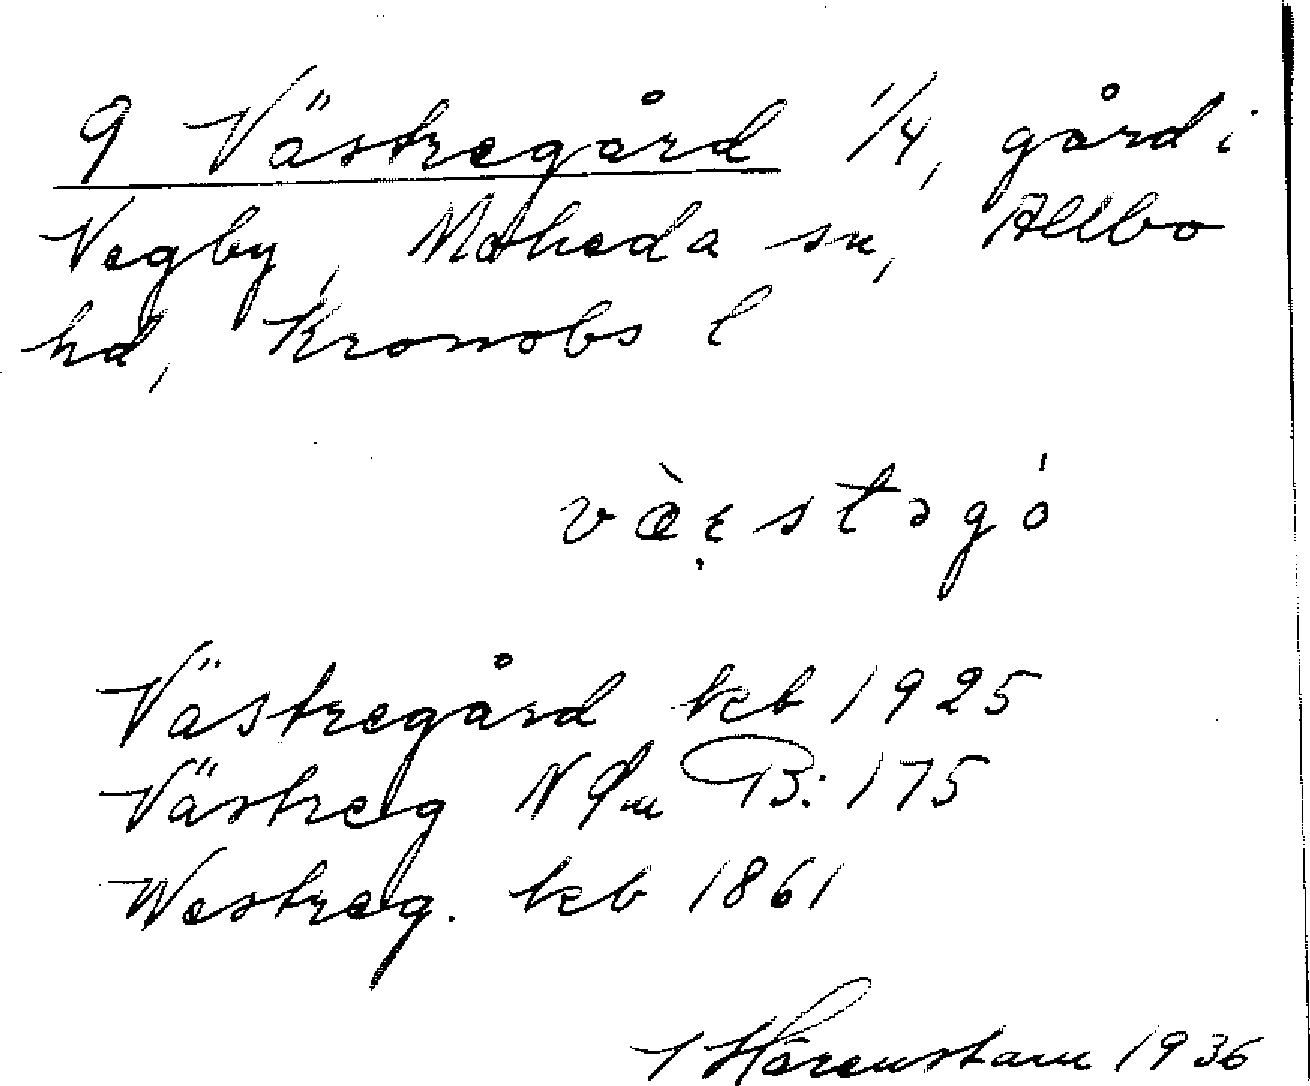 9 Västregård 1/4, gård i
Vegby, Moheda sn, Allbo
hd, Kronobs l
Västregård keb 1925
Västreg N B: 175
Westreg. keb 1861
1936